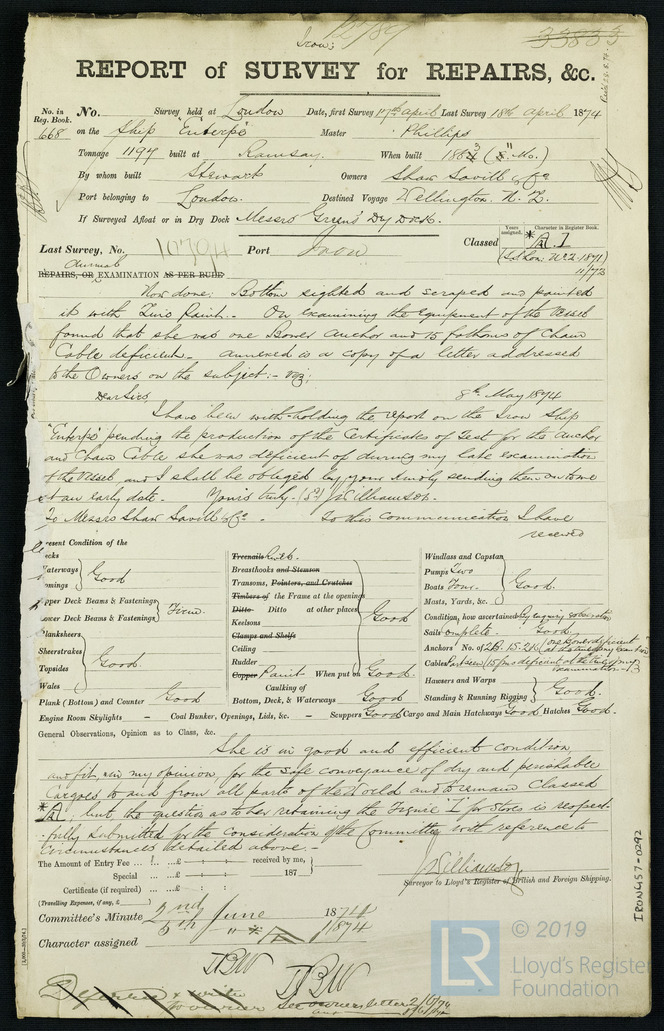 12789
33833
Iron;
REPORT of SURVEY for REPAIRS, &c.
No. in Reg. Book. No. Survey held at London Date, first Survey 17th April Last Survey 18th April 1874
668 on the Ship "Euterpe" Master Phillips
Tonnage 1197 built at Ramsay. When built 1863 (5 Mo.)
By whom built Stewart Owners Shaw Savill & Co
Port belonging to London. Destined Voyage Wellington. N. Z.
If Surveyed Afloat or in Dry Dock Messrs Green's Dry Dock.
Years assigned. Character in Register Book.
Last Survey, No. 10794 Port Iron Classed *A.1
(S.S. Lon: No2-1871)
11/73
Annual
REPAIRS, OR EXAMINATION AS PER RULE
Now done: Bottom sighted and scraped and painted
it with Zinc Paint. - On examining the equipment of the Vessel
found that she was one Bower Anchor and 15 fathoms of Chain
Cable deficient. - Annexed is a copy of a letter addressed
to the Owners on the subject: - viz;
Dear Sirs 8th May 1874
I have been with-holding the report on the Iron Ship
"Euterpe" pending the production of the Certificates of Test for the Anchor
and Chain Cable she was deficient of during my late examination
of the Vessel, and I shall be obliged by your kindly sending them on to me
at an early date. Yours truly (Sd) J Williamson.
To Messrs Shaw Savill & Co. - To this communication I have
received
Present Condition of the
ecks
Waterways
omings
Good
pper Deck Beams & Fastenings
ower Deck Beams & Fastenings
Firm.
Planksheers
Sheerstrakes
Topsides
Wales
Good
Plank (Bottom) and Counter Good
Treenails
Breasthooks and Stemson
Transoms, Pointers, and Crutches
Timbers of the Frame at the openings
Ditto Ditto at other places
Keelsons
Clamps and Shelfs
Ceiling
Rudder
Good
Copper Paint When put on Good.
Caulking of
Bottom, Deck, & Waterways Good
Windlass and Capstan
Pumps Two
Boats Four
Masts, Yards, &c.
Good.
Condition, how ascertained By enquiry & observation
Sails Complete. - Good.
Anchors' No. of 2B. 1S. 2K. (one Bower deficient at the time of my examn)
Cables Part seen (15 fms deficient at the time of my examination -)
Hawsers and Warps
Standing & Running Rigging
Good.
Engine Room Skylights - Coal Bunker, Openings, Lids, &c. - Scuppers Good Cargo and Main Hatchways Good Hatches Good.
General Observations, Opinion as to Class, &c.
She is in good and efficient condition
and fit, in my opinion, for the safe conveyance of dry and perishable
Cargoes to and from all parts of the World and to remain Classed
*A, but the question as to her retaining the Figure "1" for Stores is respect-
fully submitted for the consideration of the Committee with reference to
circumstances detailed above. -
The Amount of Entry Fee ... £ : : received by me,
Special ... £ : : 187
Certificate (if required) ... £ : :
(Travelling Expenses, if any, £ )
J Williamson
Surveyor to Lloyd's Register of British and Foreign Shipping.
Committee's Minute 2nd June 1874
5th " " 1874
Character assigned *A
TBW TBW
see owners letter 2/6/74
IRON457-0292
© 2019
LR
Lloyd's Register
Foundation